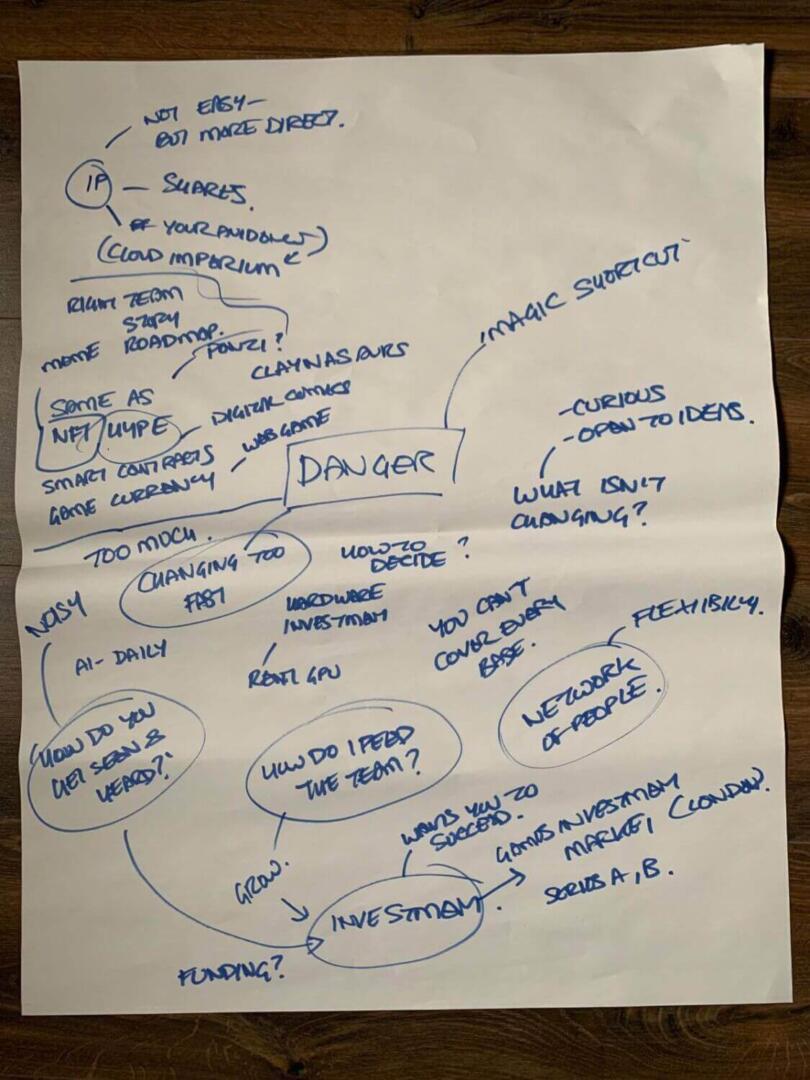 NOT EASY -
BUT MORE DIRECT.
IP
- SHARES.
YOUR
(CLOUD IMPERIUM
RIGHT TEAM
STORY
ROADMAP.
PONZI?
CLAYNASAURS
SOME AS
NFT HYPE
DIGITAL COMICS
WEB GAME
SMART CONTRACTS
GAME CURRENCY
'MAGIC SHORTCUT'
DANGER
- CURIOUS
- OPEN TO IDEAS.
WHAT ISN'T
CHANGING?
TOO MUCH.
CHANGING TOO
FAST
HOW TO
DECIDE?
NOISY
AI - DAILY
HARDWARE
INVESTMENT
RENT GPU
YOU CAN'T
COVER EVERY
BASE.
FLEXIBILITY.
NETWORK
OF PEOPLE.
HOW DO YOU
GET SEEN &
HEARD?!
HOW DO I FEED
THE TEAM?
WANTS YOU TO
SUCCEED.
GAMES INVESTMENT
MARKET (LONDON).
SERIES A, B.
GROW.
INVESTMENT.
FUNDING?